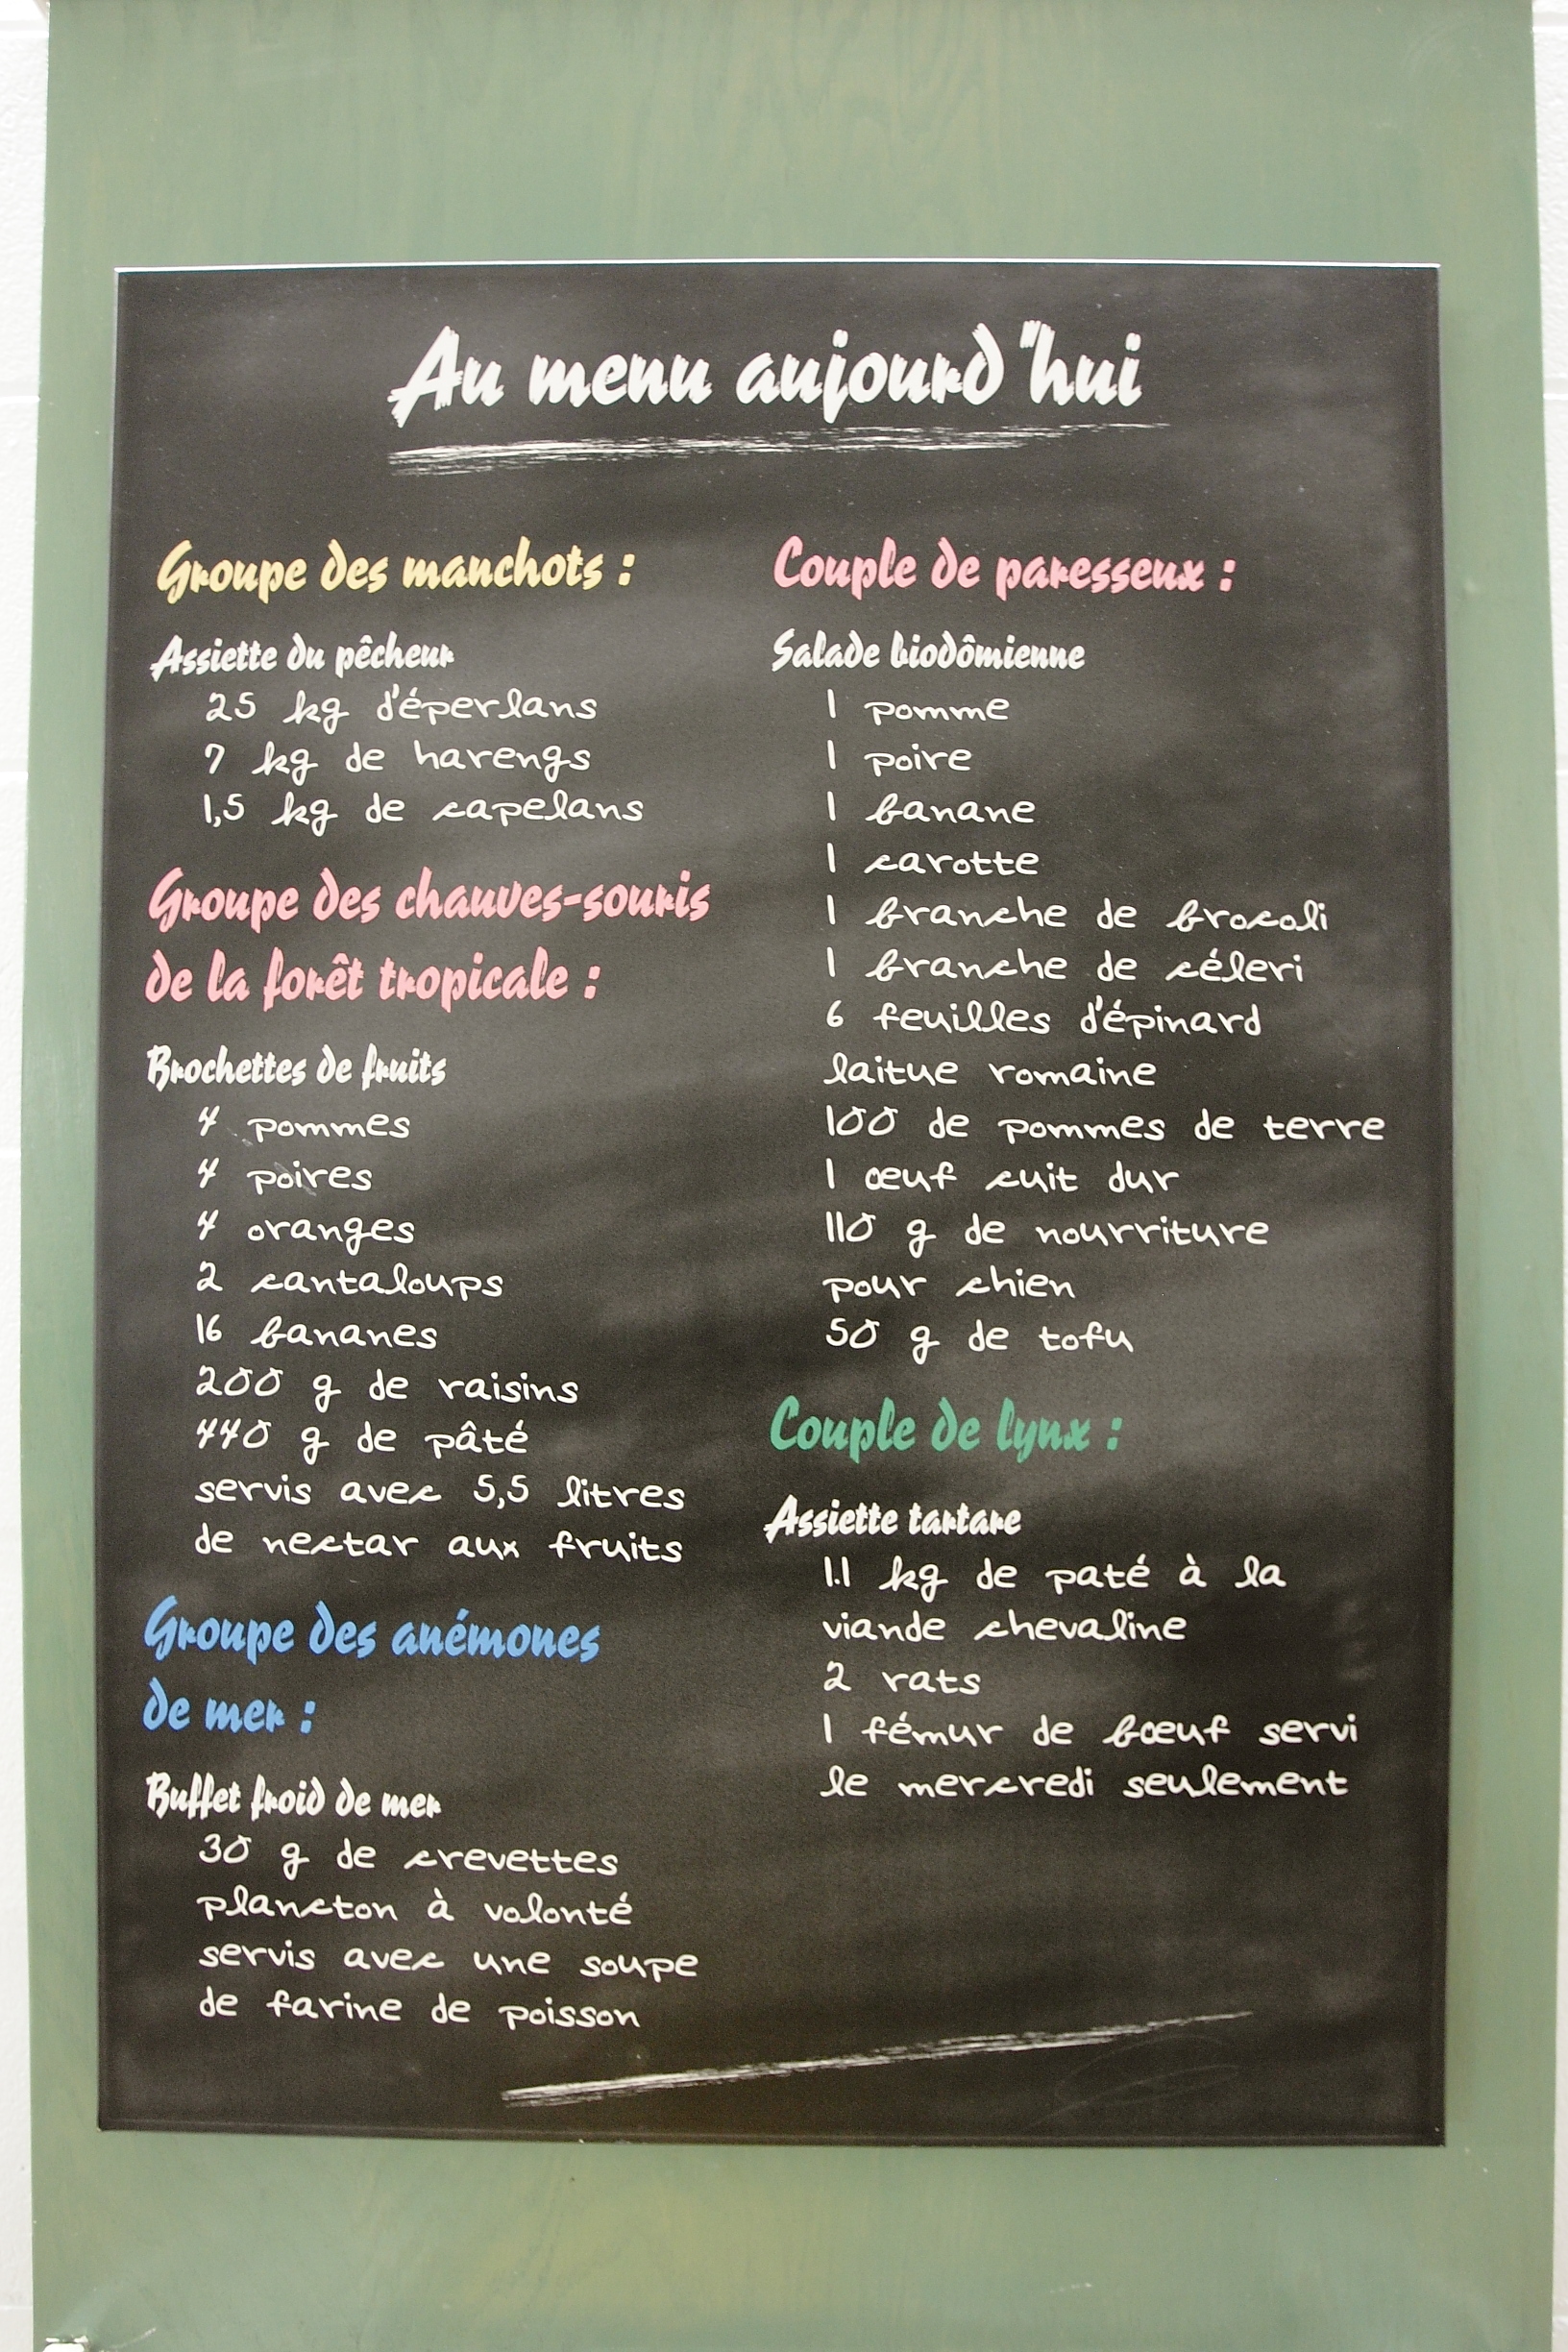 Au menu aujourd'hui
Groupe des manchots :
Assiette du pêcheur
25 kg d'éperlans
7 kg de harengs
1,5 kg de capelans
Groupe des chauves-souris
de la forêt tropicale :
Brochettes de fruits
4 pommes
4 poires
4 oranges
2 cantaloups
16 bananes
200 g de raisins
440 g de pâté
servis avec 5,5 litres
de nectar aux fruits
Groupe des anémones
de mer :
Buffet froid de mer
30 g de crevettes
plancton à volonté
servis avec une soupe
de farine de poisson
Couple de paresseux :
Salade biodômienne
1 pomme
1 poire
1 banane
1 carotte
1 branche de brocoli
1 branche de céleri
6 feuilles d'épinard
laitue romaine
100 de pommes de terre
1 œuf cuit dur
110 g de nourriture
pour chien
50 g de tofu
Couple de lynx :
Assiette tartare
1.1 kg de paté à la
viande chevaline
2 rats
1 fémur de bœuf servi
le mercredi seulement